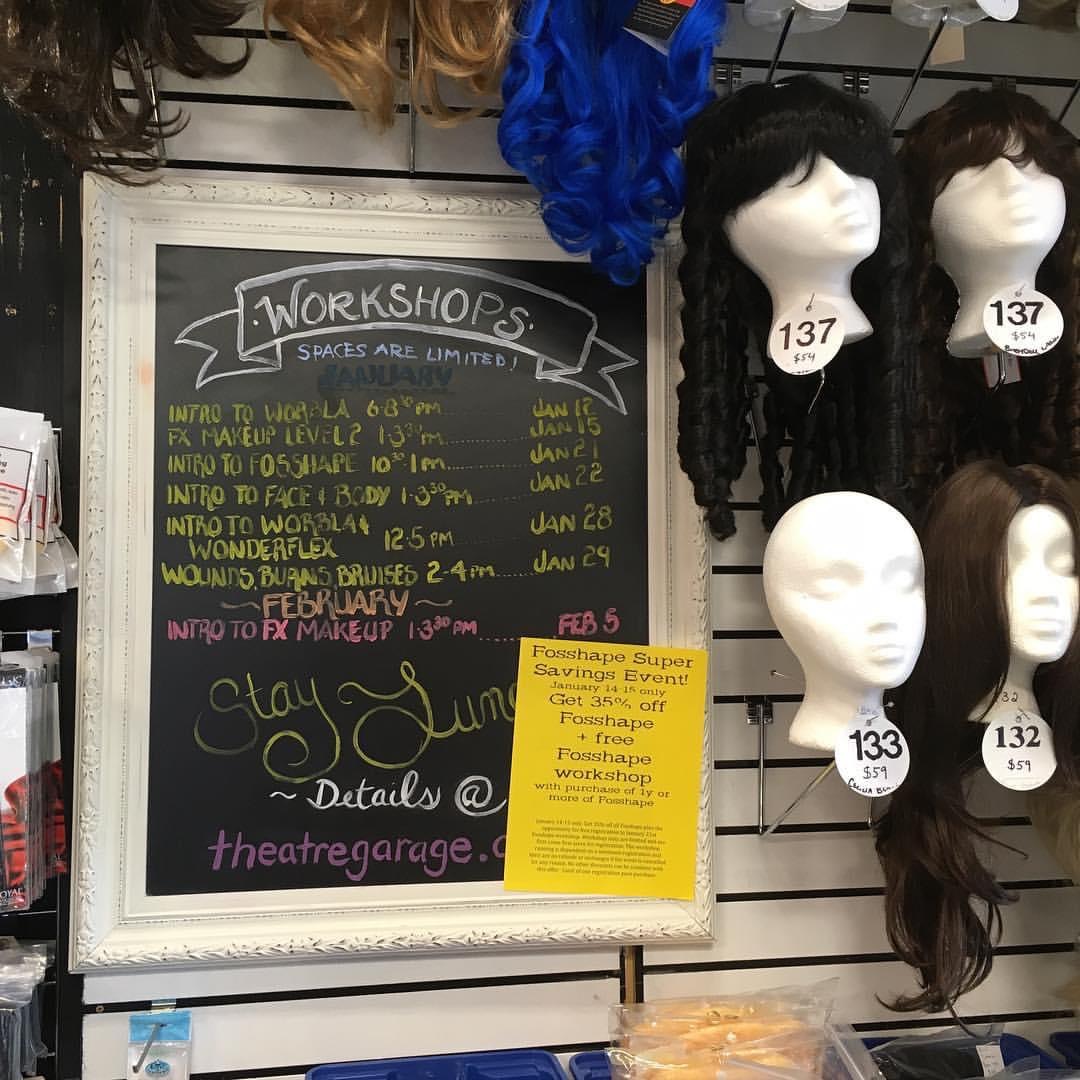 ·WORKSHOPS·
SPACES ARE LIMITED!
JANUARY
INTRO TO WORBLA 6-8³⁰ PM........ JAN 12
FX MAKEUP LEVEL 2 1-3³⁰PM........ JAN 15
INTRO TO FOSSHAPE 10³⁰-1PM........ JAN 21
INTRO TO FACE & BODY 1-3³⁰PM........ JAN 22
INTRO TO WORBLA &
WONDERFLEX 12-5 PM JAN 28
WOUNDS, BURNS, BRUISES 2-4PM...... JAN 29
~FEBRUARY~
INTRO TO FX MAKEUP 1-3³⁰PM...... FEB 5
Stay Tune
~ Details @
theatregarage.c
Fosshape Super
Savings Event!
January 14-15 only
Get 35% off
Fosshape
+ free
Fosshape
workshop
with purchase of 1y or
more of Fosshape
137
$54
137
$54
133
$59
32
132
$59